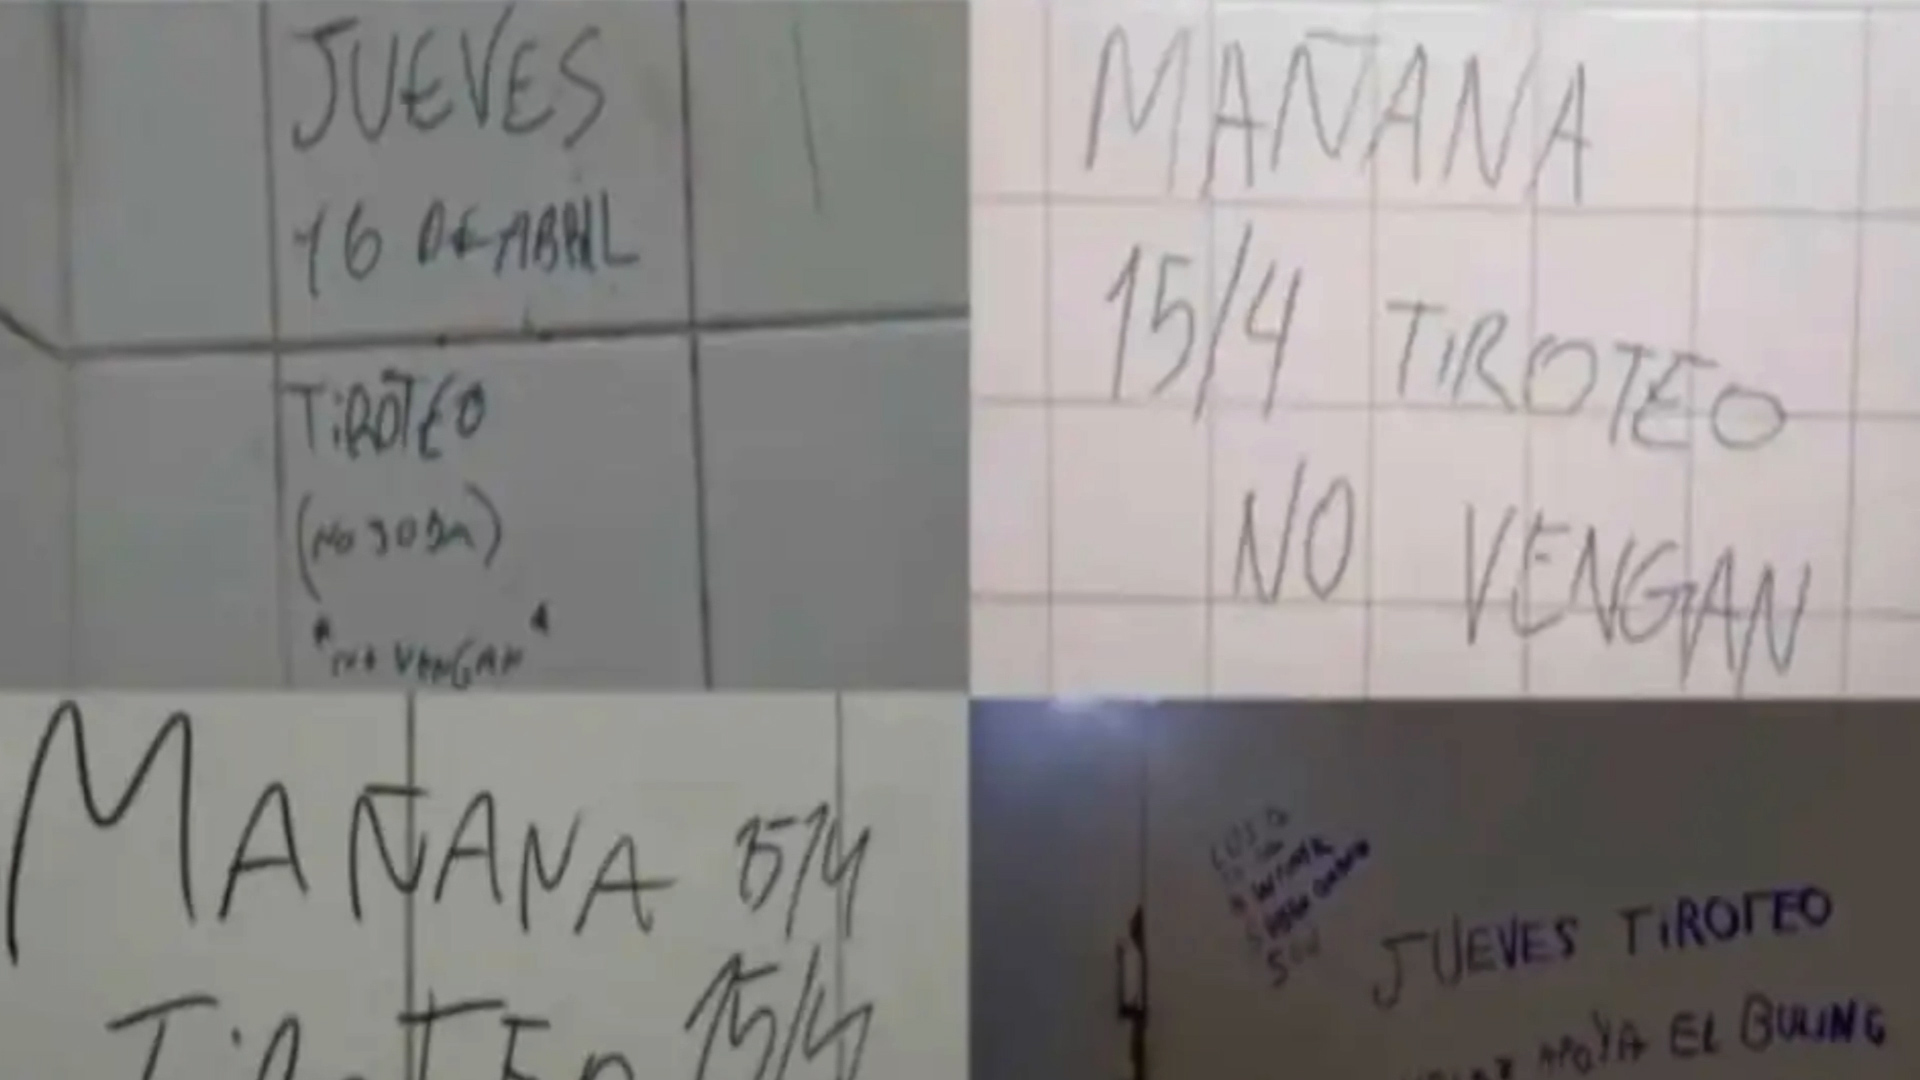 JUEVES
16 DE ABRIL
TiROTEO
(NO JODA)
"NO VENGAN"
MAÑANA
15/4 TiROTEO
NO VENGAN
MAÑANA 15/4
TiROTEO 15/4
JUEVES TiROTEO
APOYA EL BULING